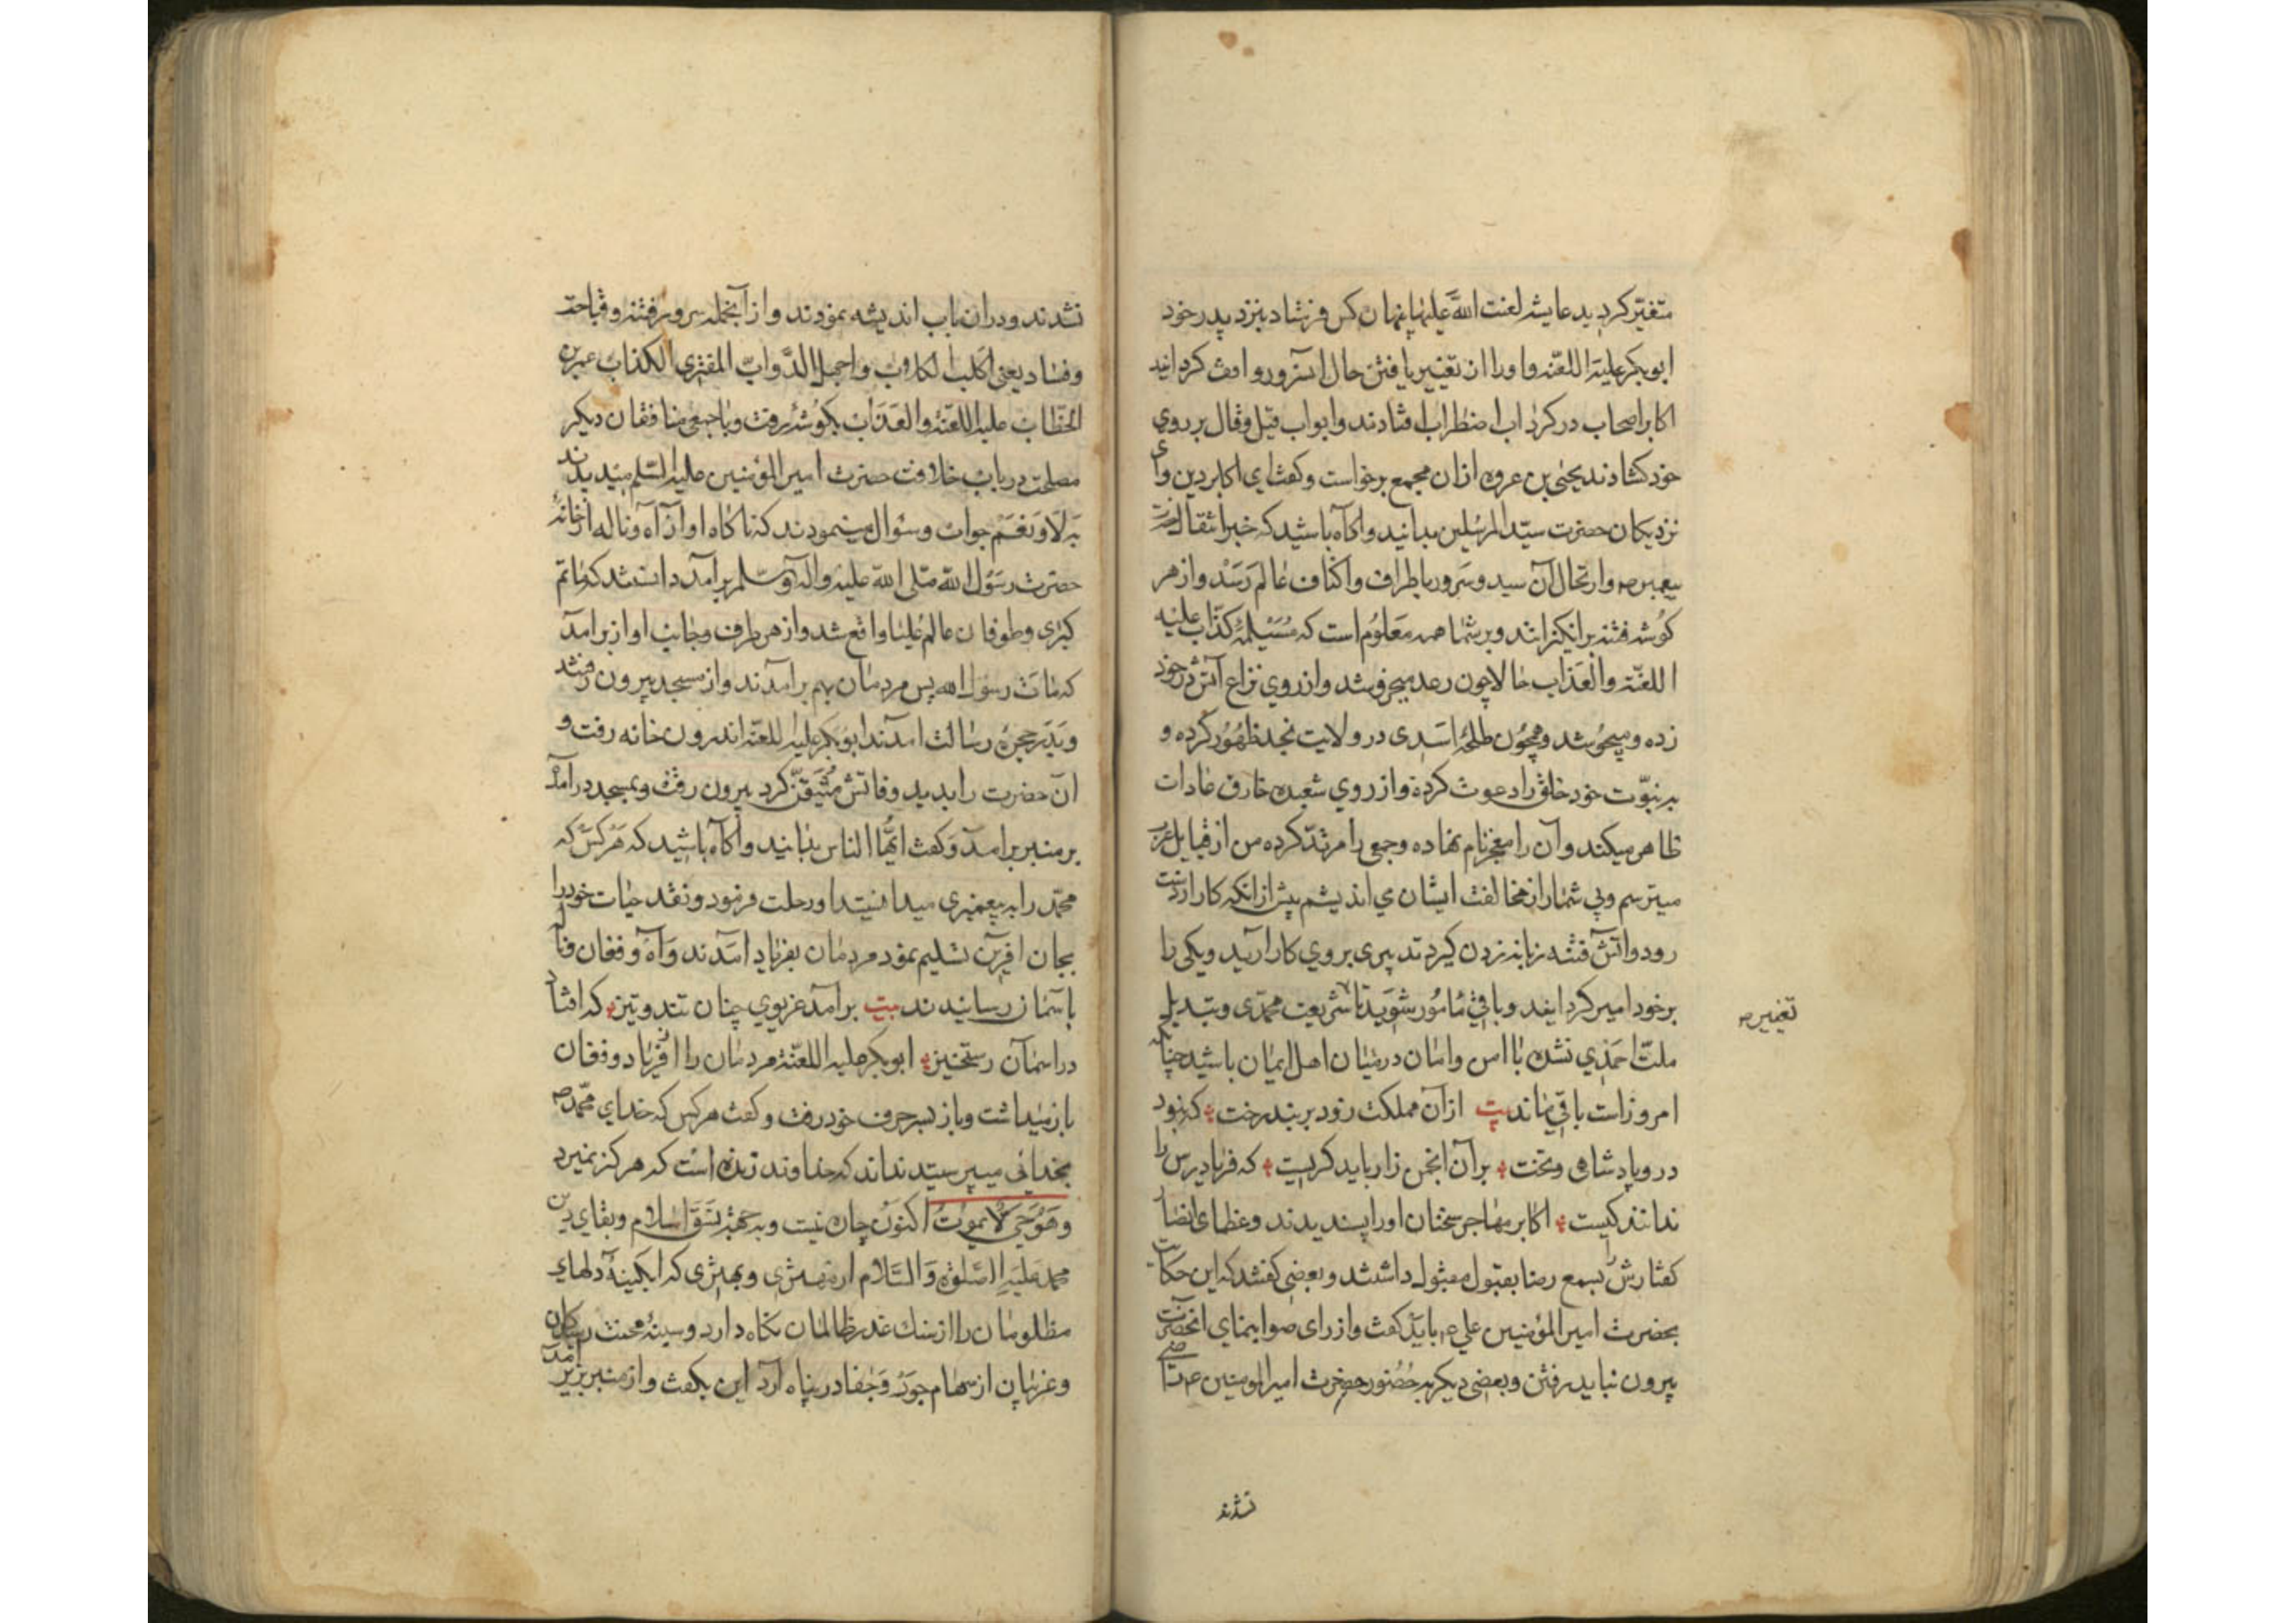 متغیّر کردید عایشه لعنت الله علیها پنهان کس فرستاد بنزد پدر خود
ابوبکر علیه اللعنه و او را از تغییر یافتن حال آنسرور واقف کردانید
اکابر اصحاب در کرداب اضطراب افتادند و ابواب قیل و قال بر روی
خود کشادند یحیی بن عروه ازان مجمع برخواست و کفت ای اکابر دین و ای
نزدیکان حضرت سیّد المرسلین بدانید و آکاه باشید که خبر انتقال حضرت
پیغمبر ص و ارتحال آن سید و سرور باطراف و اکناف عالم رسد و از هر
کوشه فتنه برانکیزانند و بر شما همه معلوم است که مُسَیْلمۀ کذّاب علیه
اللعنة والعذاب حالا چون رعد میخروشد و از روی نزاع آتش در خود
زده و میجوشد و همچون طلحۀ اسدی در ولایت نجد ظهور کرده و
به نبوّت خود خلق را دعوت کرده و از روی شعبده خارق عادات
ظاهر میکند و آن را معجز نام نهاده و جمعی را مرتدّ کرده من از قبایل عرب
میترسم و بی شمار از مخالفت ایشان می اندیشم پیش از انکه کار از دست
رود و آتش فتنه زبانه زدن کیرد تدبیری بروی کار آرید و یکی را
بر خود امیر کردانید و باقی مأمور شوید تا شریعت محمّدی و تبدیل
تغییر ص
ملّت احمدی نشده با امن و امان در میان اهل ایمان باشید چنانکه
امروز است باقی بماند بیت ازان مملکت زود بربند رخت که نبود
درو پادشاهی و تخت بر آن انجمن زار باید کریست که فریادرس را
ندانند کیست اکابر مهاجر سخنان او را پسندیدند و عظمای انصار
کفتارش را بسمع رضا بقبول مقبول داشتند و بعضی کفتند که این حکایت
بحضرت امیر المؤمنین علی ع باید کفت و از رای صوابنمای انحضرت
بیرون نباید رفتن و بعضی دیکر به حضور حضرت امیر المومنین ع راضی
نشدند
نشدند و در ان باب اندیشه نمودند و از آنجمله سرور فتنه و قباحت
و فساد یعنی اکلب الکلاب و اجهل الدّواب المفتری الکذاب عمر بن
الخطّاب علیه اللعنة والعذاب بکوشه رفت و با جمعی منافقان دیکر
مصلحت در باب خلافت حضرت امیر المؤمنین علیه السّلم میدیدند
به لا و نعم جواب و سؤال مینمودند که ناکاه اواز آه و ناله از خانۀ
حضرت رسول الله صلی الله علیه و اله و سلّم برآمد دانستند که ماتم
کبری و طوفان عالم علیا واقع شد و از هر طرف و جانب اواز برآمد
که مات رسول الله پس مردمان بهم برآمدند و از مسجد بیرون رفتند
و بدر حجرۀ رسالت امدند ابوبکر علیه اللعنه اندرون خانه رفت و
ان حضرت را بدید وفاتش متیقّن کرد بیرون رفت و بمسجد درآمد
بر منبر برآمد و کفت ایّها الناس بدانید و آکاه باشید که هر کس که
محمّد را به پیغمبری میدانستید او رحلت فرمود و نقد حیات خود را
بجان افرین تسلیم نمود مردمان بفریاد امدند و آه و فغان
باسمان رسانیدند بیت برآمد غریوی چنان تند و تیز که افتاد
در اسمان رستخیز ابوبکر علیه اللعنة مردمان را از فریاد و فغان
بازمیداشت و باز بسر حرف خود رفت و کفت هر کس که خدای محمّد ص
بخدائی میپرستید نداند که خداوند زنده است که هرکز نمیرد
و هو حی لا یموت اکنون چاره نیست و به جهة نسق اسلام و بقای دین
محمد علیه الصلوة والسّلام از مهتری و بهتری که آبکینۀ دلهای
مظلومان را از سنك غدر ظالمان نکاه دارد و سینۀ محنت رسیدکان
و غریبان از سهام جور و جفا در پناه آرد این بکفت و از منبر بزیر آمد